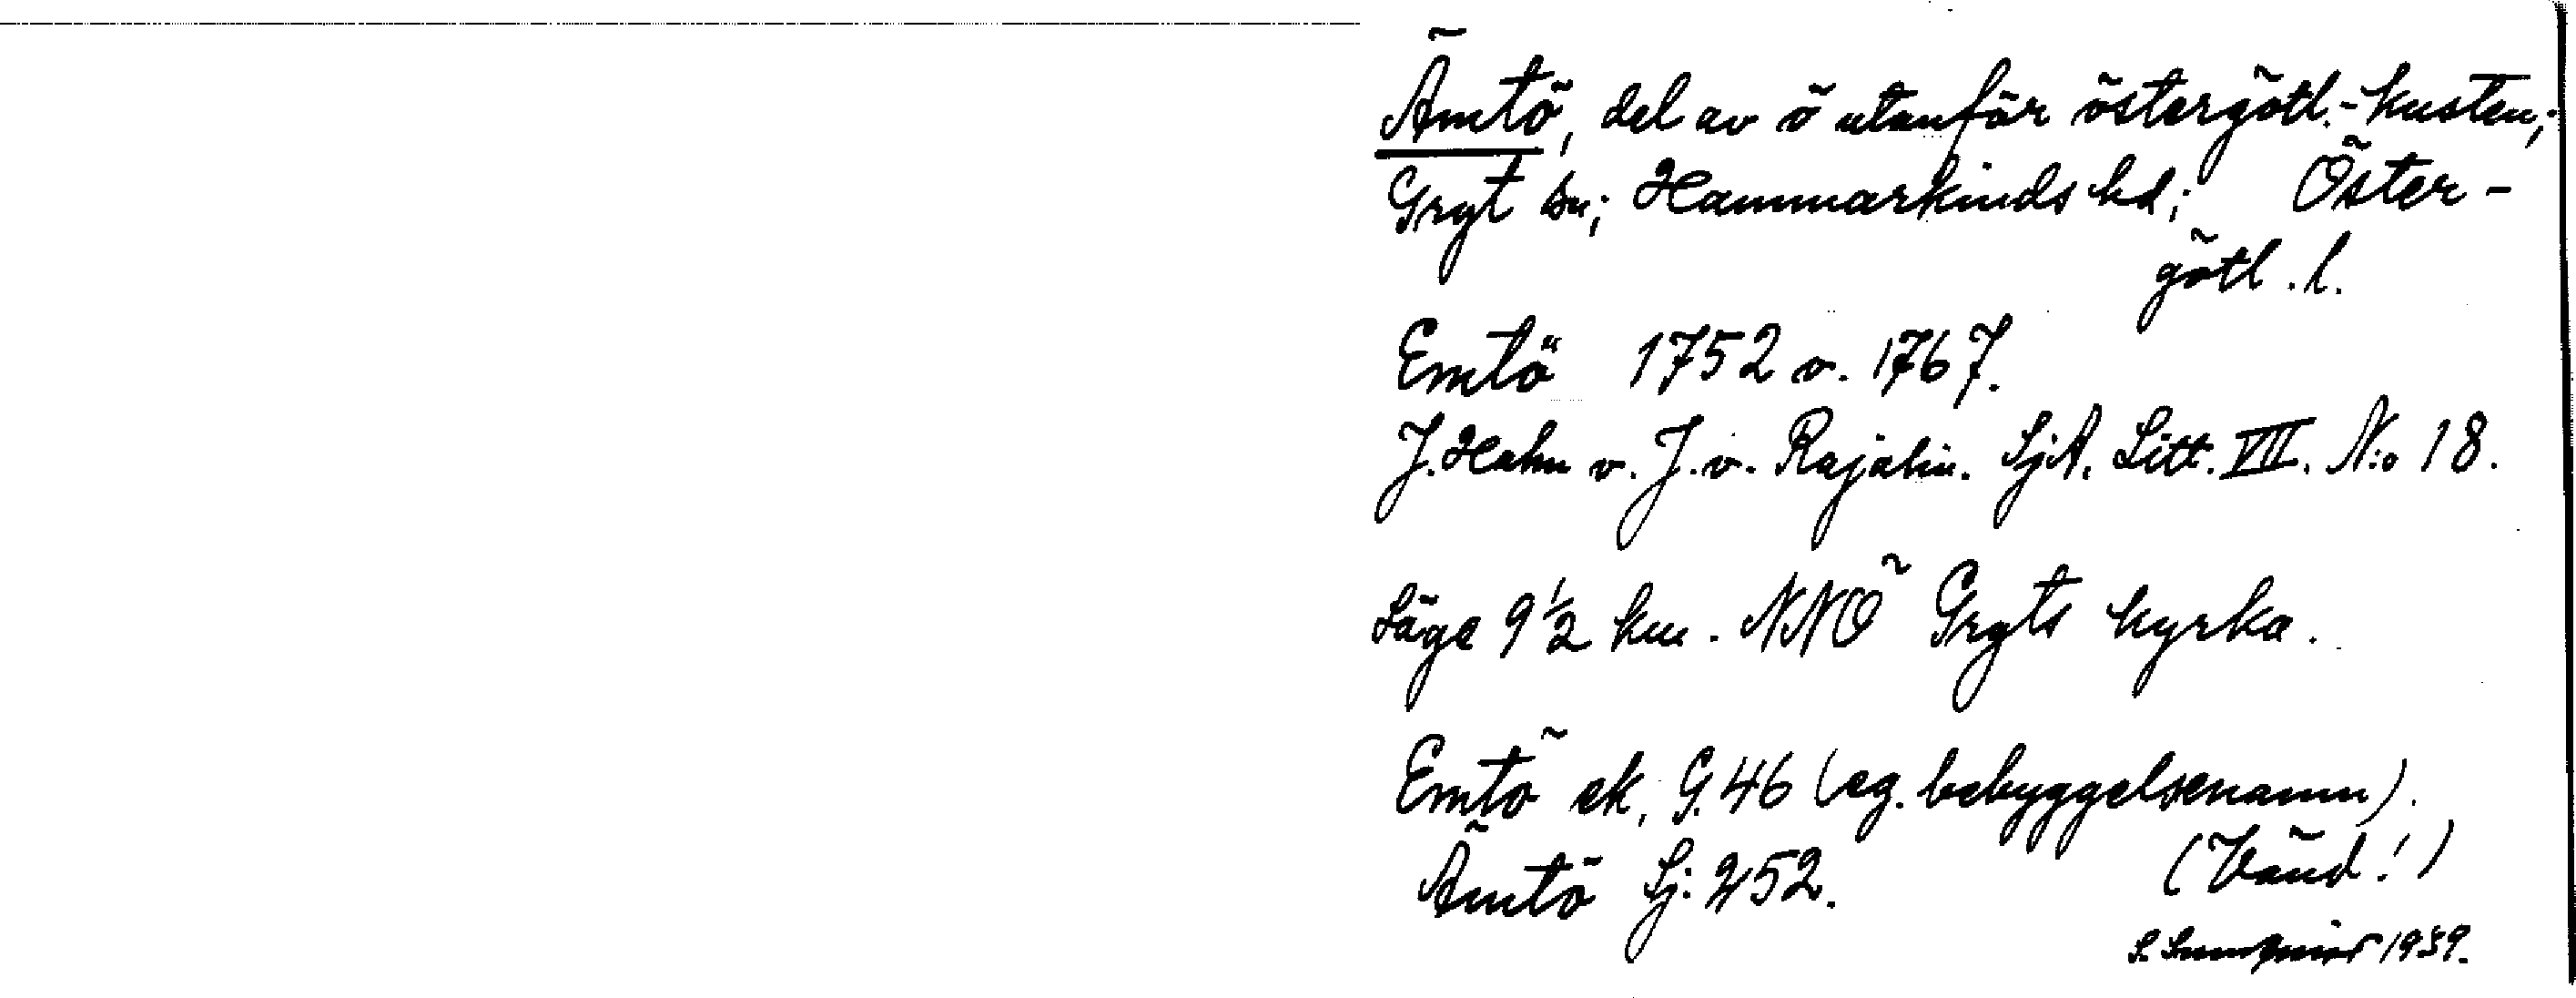 Ämtö, del av ö utanför östergötl.-kusten;
Gryt sn; Hammarkinds hd; Öster-
götl. l.
Emtö 1752 o. 1767.
J. Hahn o. J. v. Rajalin. SjA. Litt. VII. N:o 18.
Läge 9 1/2 km. NNÖ Gryts kyrka.
Emtö ek. G. 46 (eg. bebyggelsenamn).
Ämtö Sj: 252.
(Vänd!)
S. 1939.